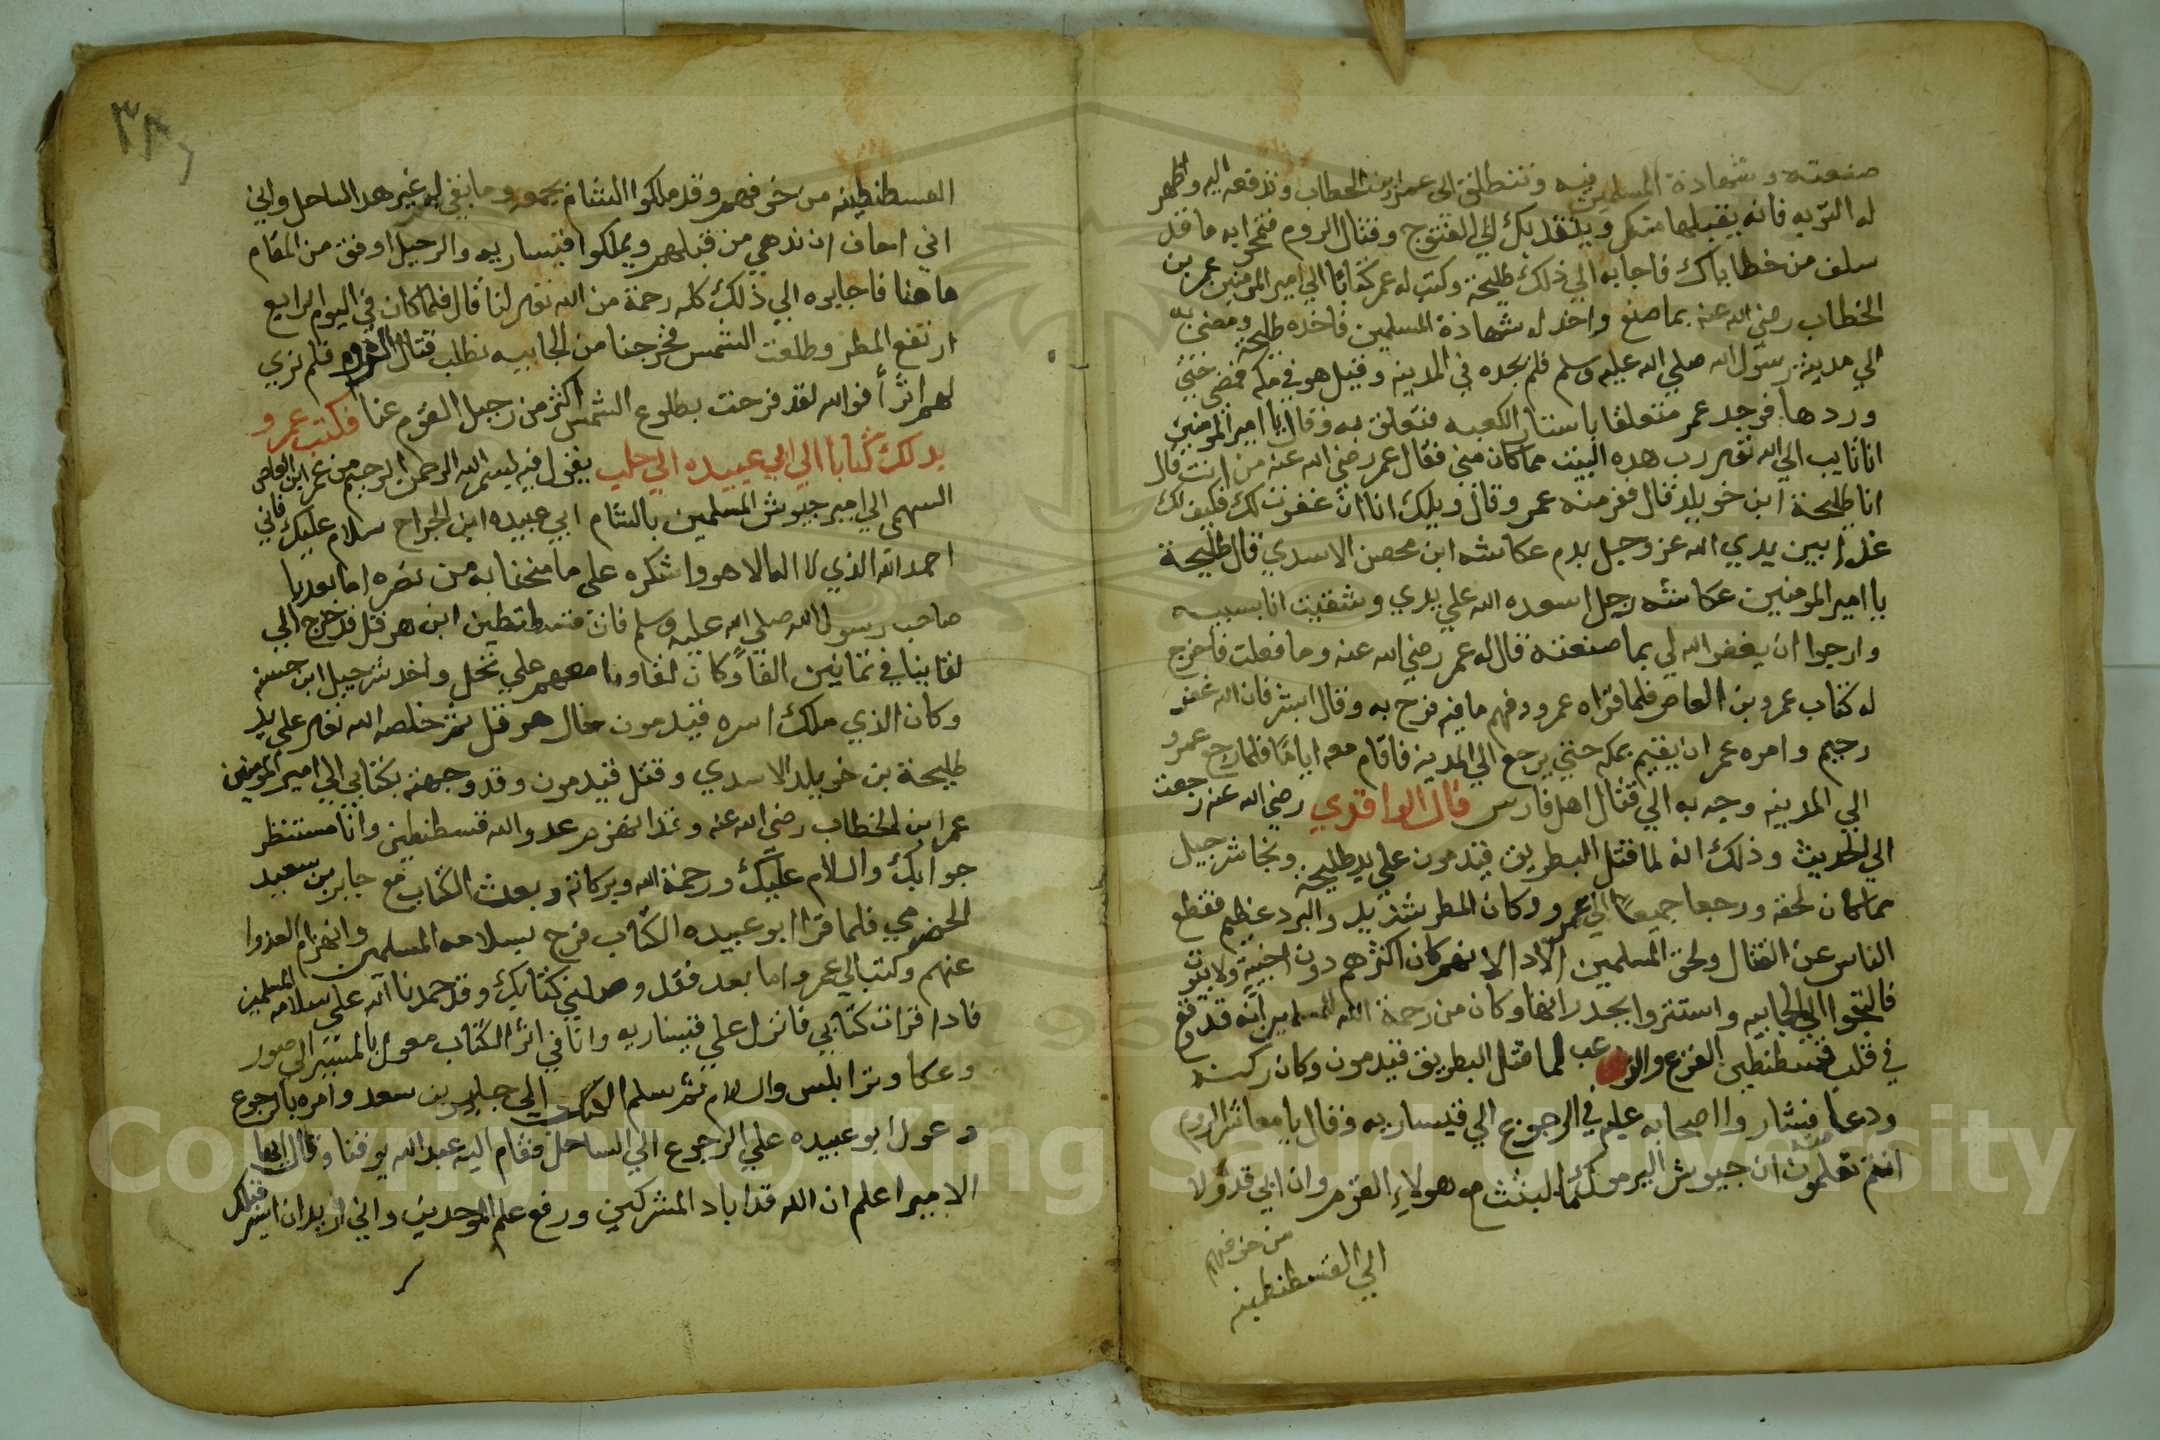 صنعته وشهادة المسلمين فيه وتنطلق الى عمر ابن الخطاب وتدفعه اليه وتظهر
له التوبه فانه يقبلها منكم وينفد بك الي الفتوح وقتال الروم فتمحوا به ما قد
سلف من خطاياك فاجابه الي ذلك طليحة وكتب له عمر كتابا الي امير المومنين عمر بن
الخطاب رضي الله عنه بما صنع واخد له شهادة المسلمين فاخده طليحه ومضى به
الي مدينة رسول الله صلي الله عليه وسلم فلم يجده في المدينه وقيل هو في مكه فمضى حتي
وردها فوجد عمر متعلقا باستار الكعبه فتعلق به وقال يا امير المومنين
انا تايب الي الله تعالى رب هده البيت مما كان مني فقال عمر رضي الله عنه من انت قال
انا طليحة ابن خويلد قال ففر منه عمر وقال ويلك انا ان غفرت لك فكيف لك
غدا بين يدي الله عز وجل بدم عكاشه ابن محصن الاسدي قال طليحة
يا امير المومنين عكاشه رجل اسعده الله علي يدي وشقيت انا بسببه
وارجوا ان يغفر الله لي بما صنعته قال له عمر رضي الله عنه وما فعلت فاخرج
له كتاب عمرو بن العاص فلما قراه عمر وفهم ما فيه فرح به وقال ابشر فان الله غفور
رحيم وامره عمر ان يقيم بمكه حتي يرجع الي المدينه فاقام معه اياما فلما رجع عمرو
الي المدينه وجه به الي قتال اهل فارس قال الواقدي رضي الله عنه رجعت
الي الحديث وذلك انه لما قتل البطريق قيدمون علي يد طليحة ونجا شرجيل
مما كان لحقه ورجعا جميعا الي عمرو وكان المطر شديد والبرد عظيم فقطع
الناس عن القتال ولحق المسلمين الاد الا نهم كان اكثرهم دون اخبية ولا بيوت
فالتجوا الي الجابيه واستتروا بجدرانها وكان من رحمة الله للمسلمين انه قد وقع
في قلب قسطنطين الفزع والرعب لما قتل البطريق قيدمون وكان ركنه
ودعا فشاروا اصحابه عليه في الرجوع الي قيساريه وقال يا معاشر الروم
انتم تعلمون ان جيوش اليرموك ما لبثت مع هولاء القوم وان ابي قد ولا
من خوفهم
الي القسطنطينه
٣٨
القسطنطينه من خوفهم وقد ملكوا الشام جميعه وما بقي لهم غير هدا الساحل واني
اني اخاف ان ندهي من قبلهم ويملكوا قيساريه والرحيل اوفق من المقام
هاهنا فاجابوه الي ذلك كله رحمة من الله تعالى لنا قال فلما كان في اليوم الرابع
ارتفع المطر وطلعت الشمس فخرجنا من الجابيه نطلب قتال الروم فلم نري
لهم اثرا فوالله لقد فرحت بطلوع الشمس اكثر من رحيل القوم عنا فكتب عمرو
بدلك كتابا الي ابي عبيده الي حلب يقول فيه بسم الله الرحمن الرحيم من عمر ابن العاص
السهمي الي امير جيوش المسلمين بالشام ابي عبيده ابن الجراح سلام عليك فاني
احمد الله الذي لا اله الا هو واشكره علي ما منحنا به من نصره اما بعد يا
صاحب رسول الله صلي الله عليه وسلم فان قسطنطين ابن هرقل قد خرج الي
لقاينا في ثمانين الفا وكان لقاونا معهم علي نخل واخد شرجيل ابن حسنه
وكان الذي ملك اسره قيدمون خال هرقل ثم خلصه الله تعالى علي يد
طليحة بن خويلد الاسدي وقتل قيدمون وقد وجهته بكتابي الي امير المومنين
عمر ابن الخطاب رضي الله عنه وغدا انهزم عدو الله قسطنطين وانا منتظر
جوابك والسلام عليك ورحمة الله وبركاته وبعث الكتاب مع جابر بن سعيد
الحضرمي فلما قرا ابو عبيده الكتاب فرح بسلامه المسلمين وانهزام العدوا
عنهم وكتب الي عمروا اما بعد فقد وصلني كتابك وقد حمدنا الله علي سلامه المسلمين
فادا قرات كتابي فانزل علي قيساريه وانا في اثر الكتاب معول بالمسير الي صور
وعكا وترابلس والسلام ثم سلم الكتاب الي جابر بن سعد وامره بالرجوع
وعول ابو عبيده علي الرجوع الي الساحل فقام اليه عبد الله يوقنا وقال ايها
الامير اعلم ان الله قد اباد المشركين ورفع علم الموحدين واني اريد ان اسير قبلك